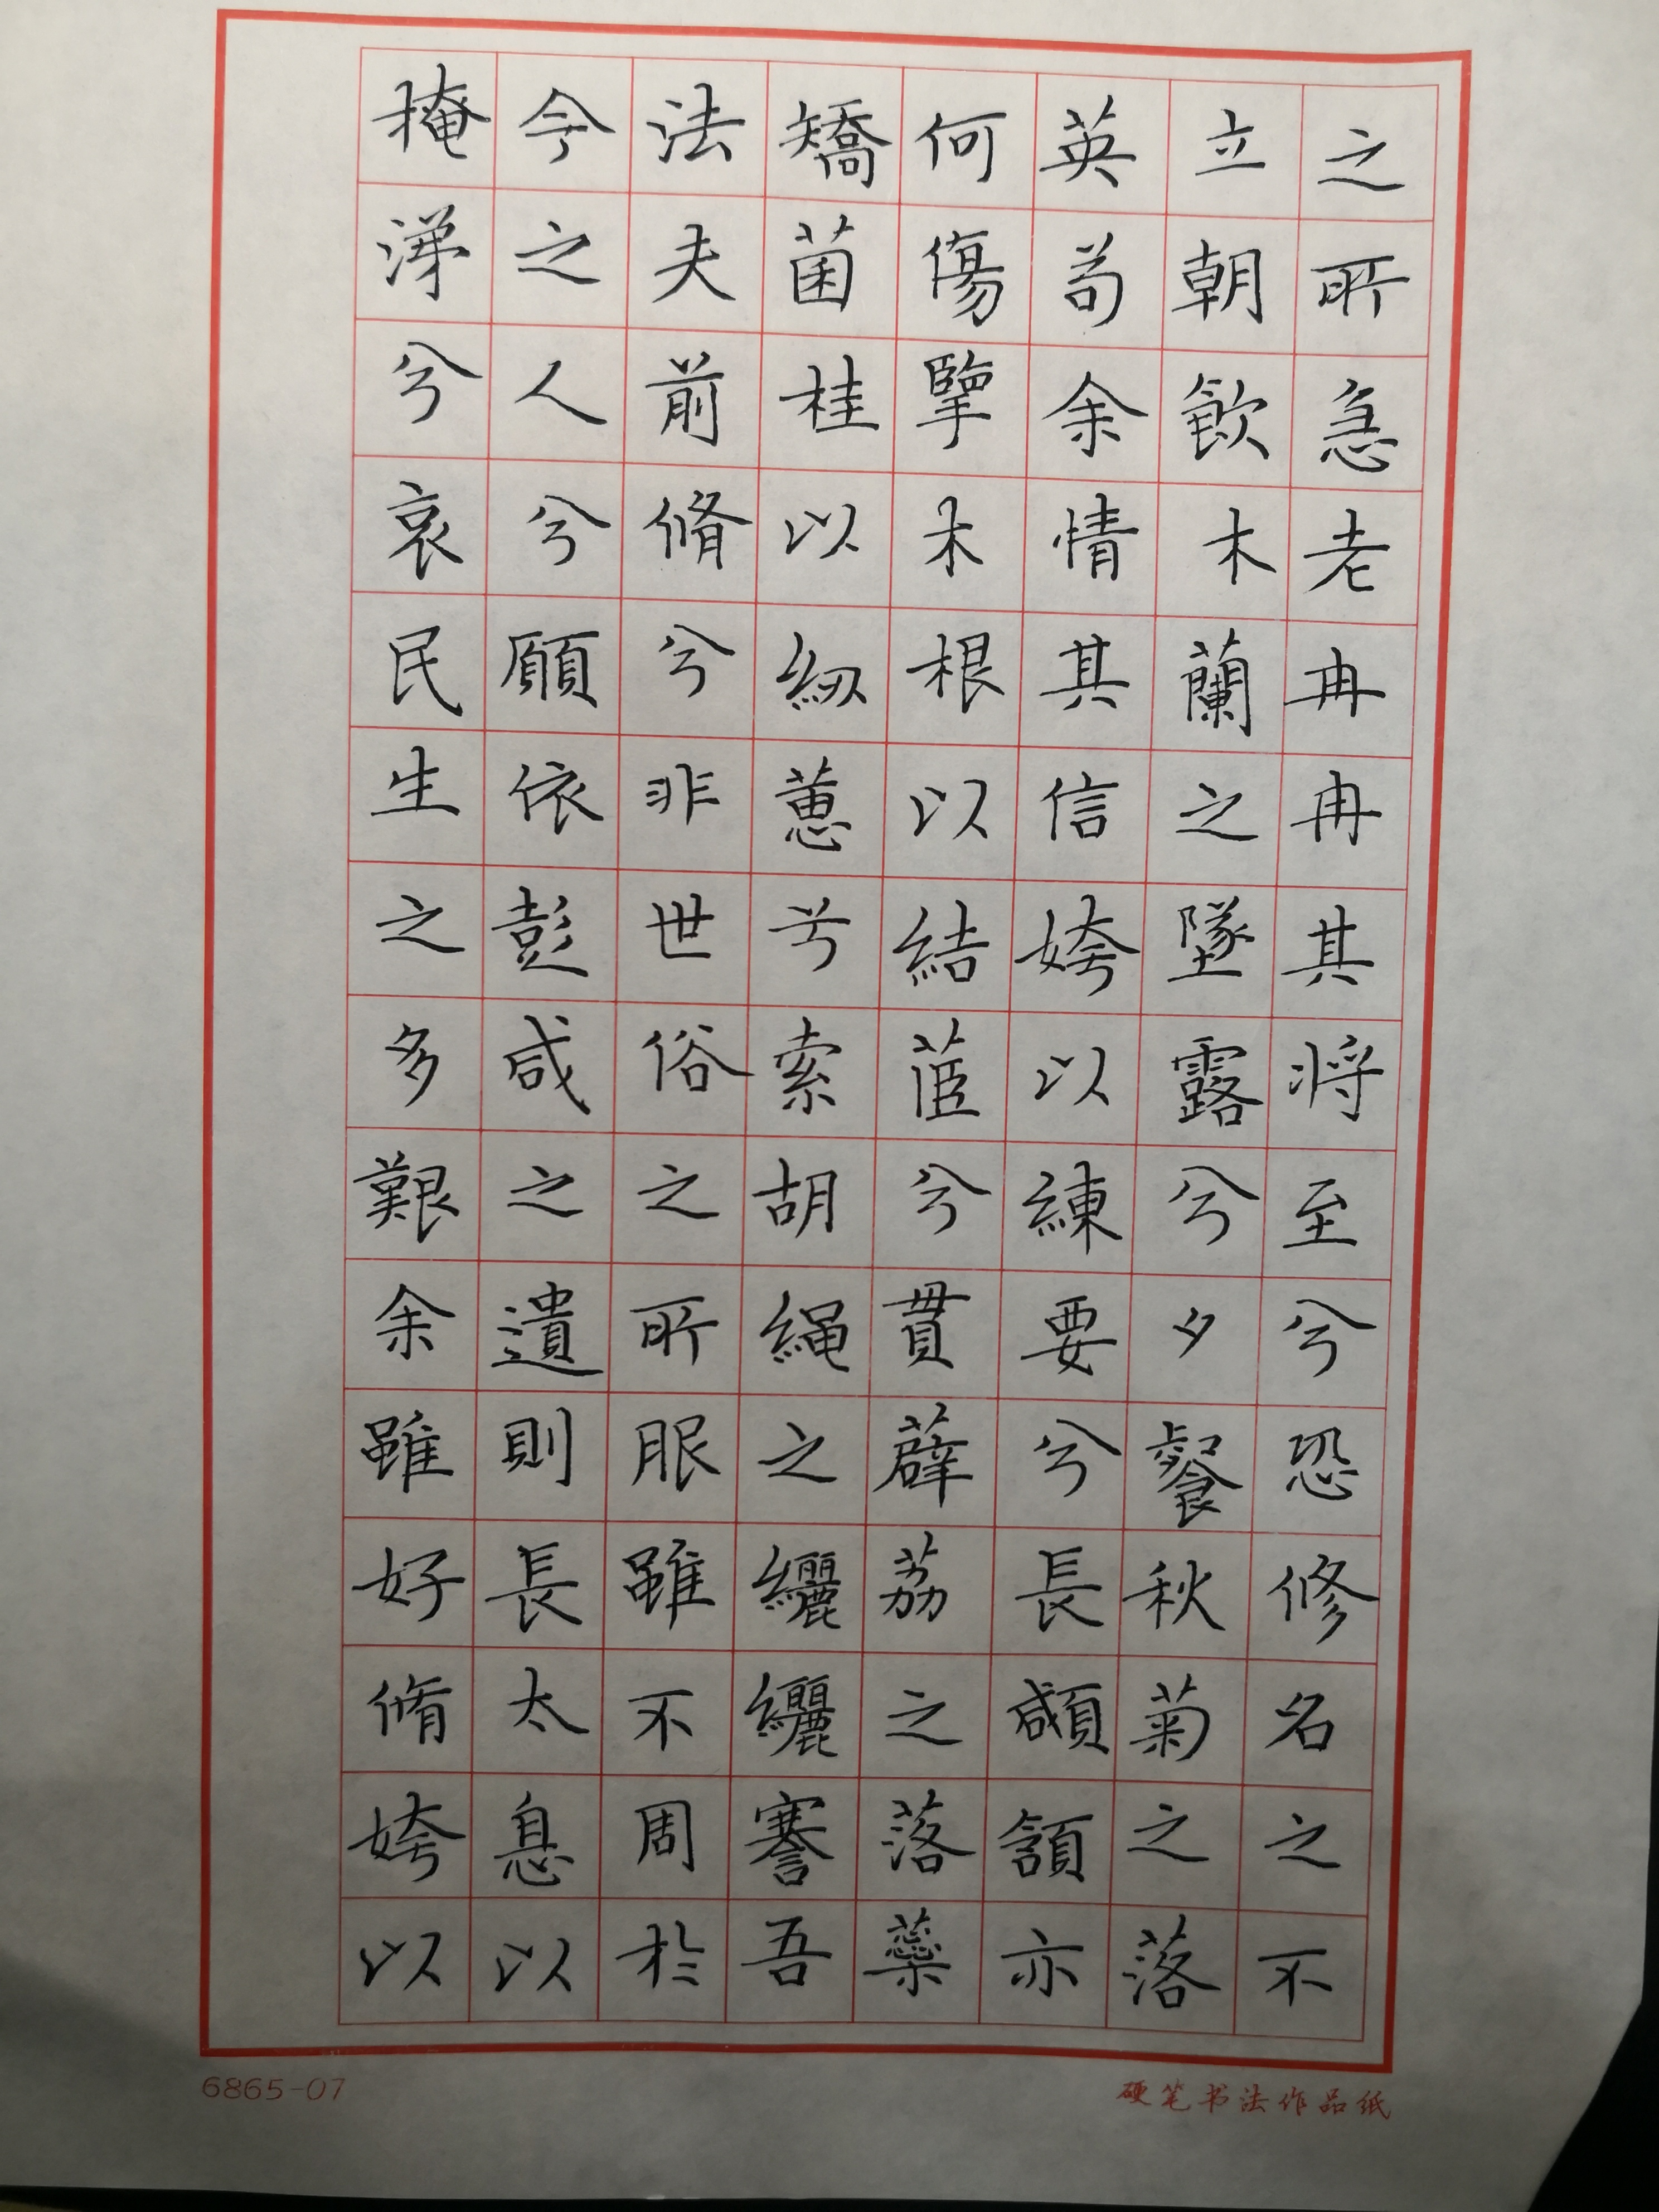 之所急老冉冉其将至兮恐修名之不
立朝飲木蘭之墜露兮夕餐秋菊之落
英苟余情其信姱以練要兮長顑頷亦
何傷擥木根以結茝兮貫薜荔之落蘂
矯菌桂以紉蕙兮索胡繩之纚纚謇吾
法夫前脩兮非世俗之所服雖不周於
今之人兮願依彭咸之遺則長太息以
掩涕兮哀民生之多艱余雖好脩姱以
6865-07
硬笔书法作品纸